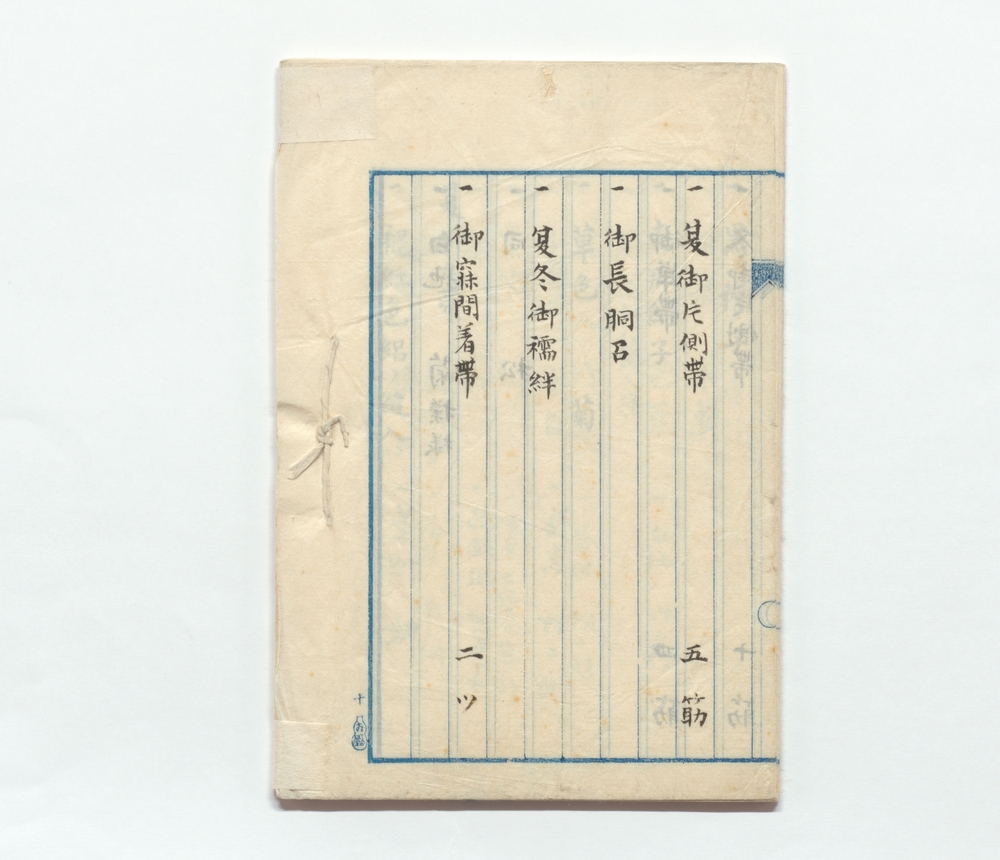 一 夏御片側帯 五筋
一 御長胴召
一 夏冬御襦絆
一 御寐間着帯 二ツ
十